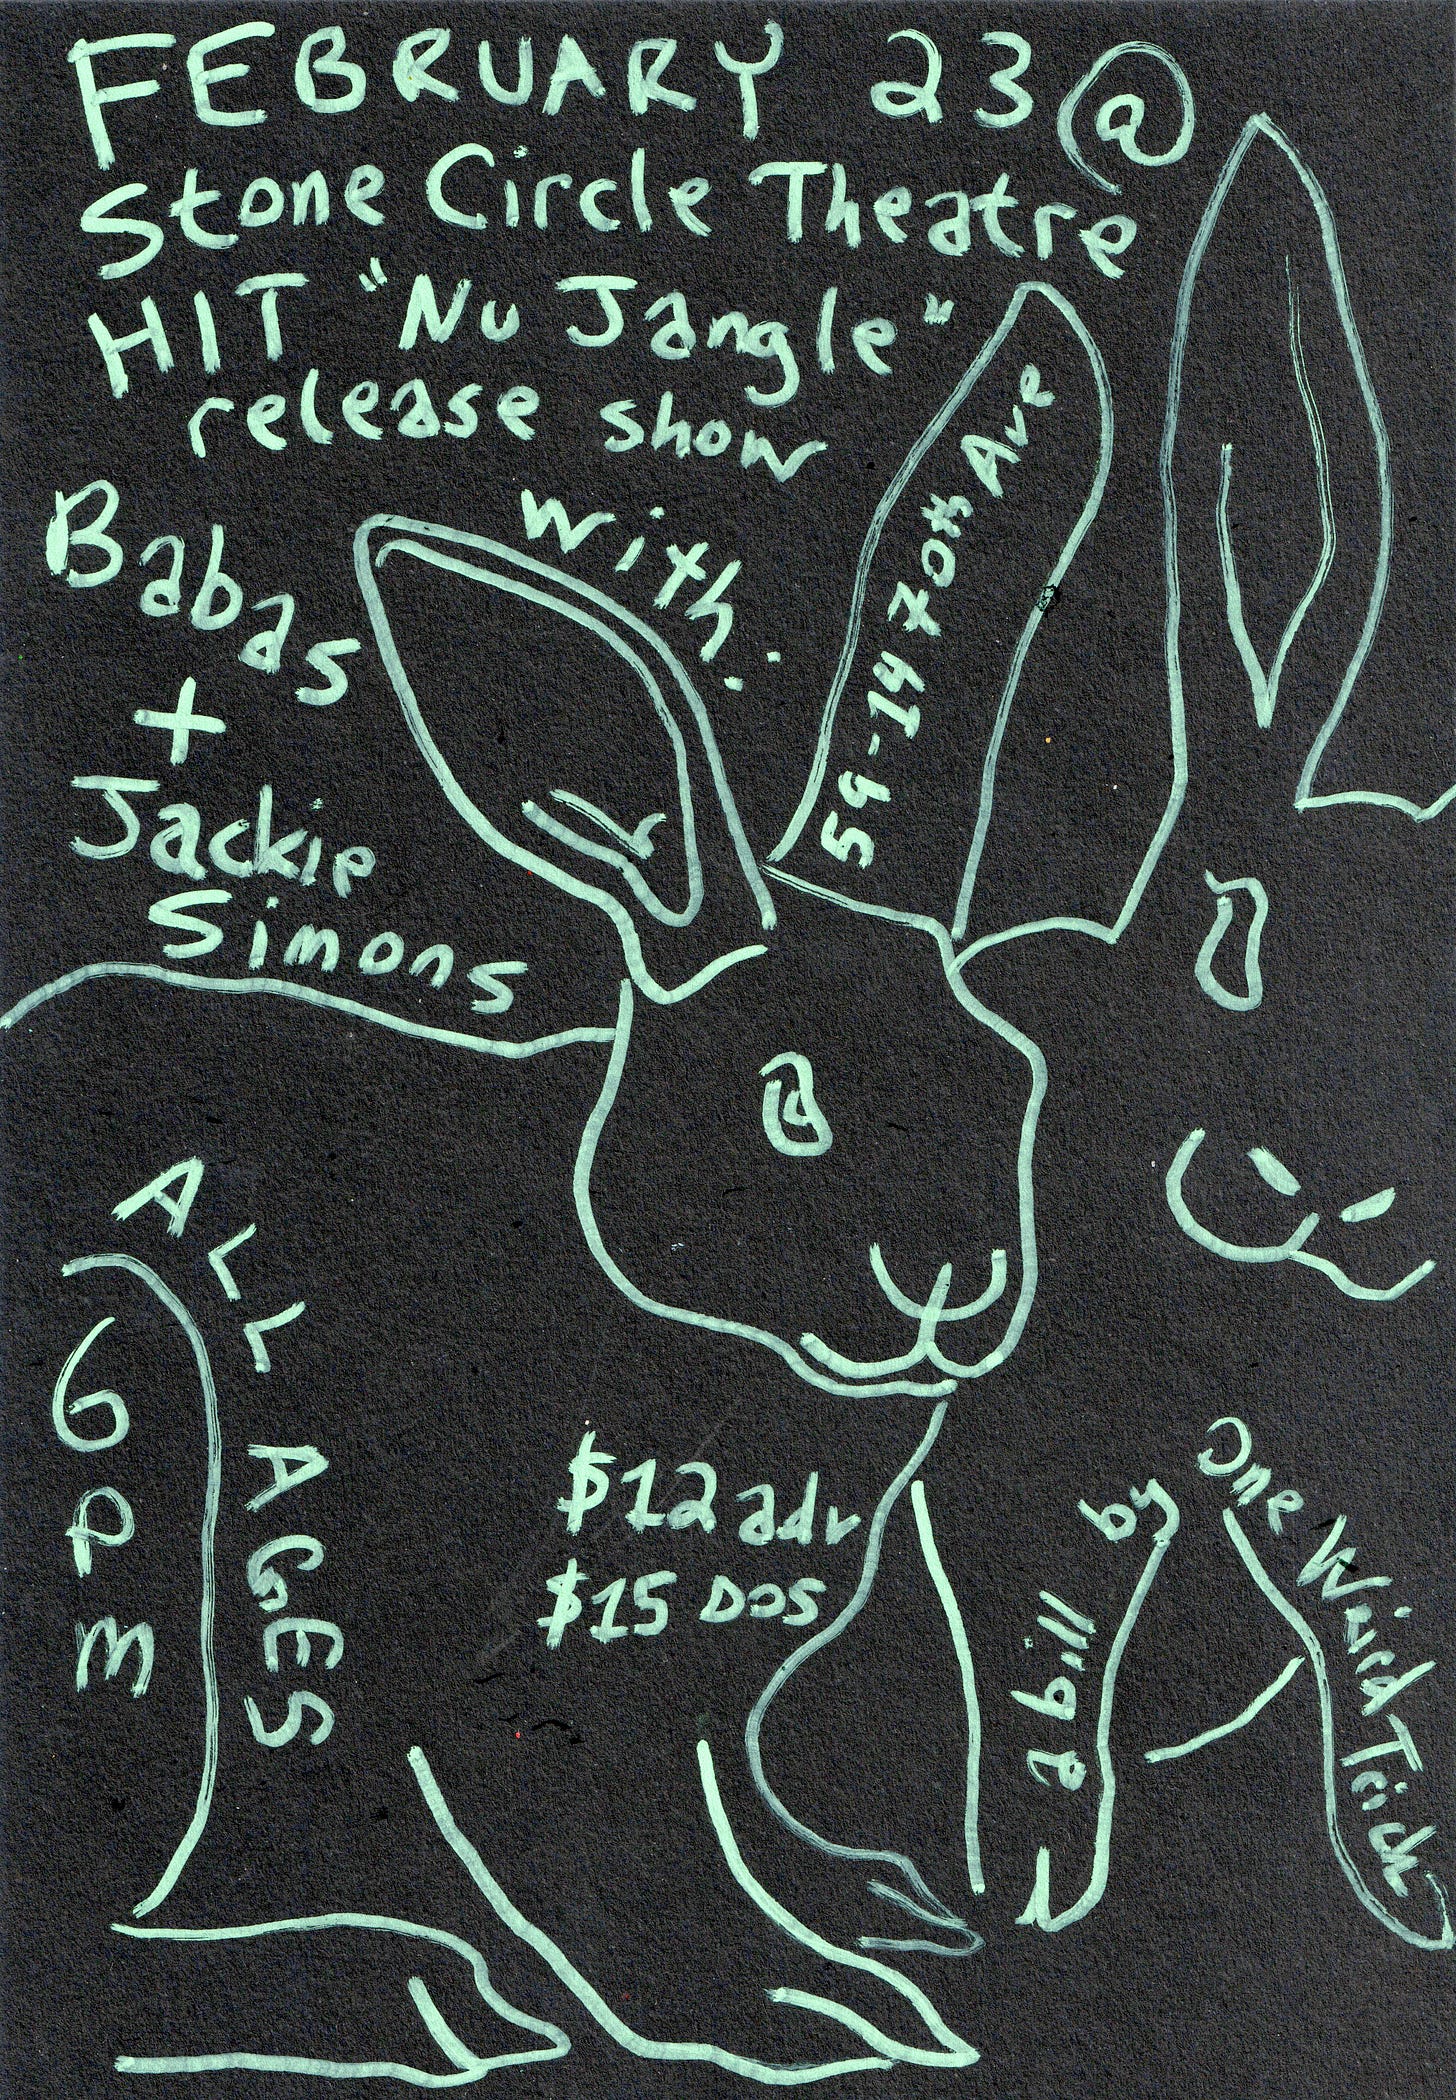 FEBRUARY 23 @
Stone Circle Theatre
HIT "Nu Jangle"
release show
with:
Babas
+
Jackie
Simons
59-14 70th Ave
ALL AGES
6 pm
$12 adv
$15 DOS
a bill by
One Weird Trick